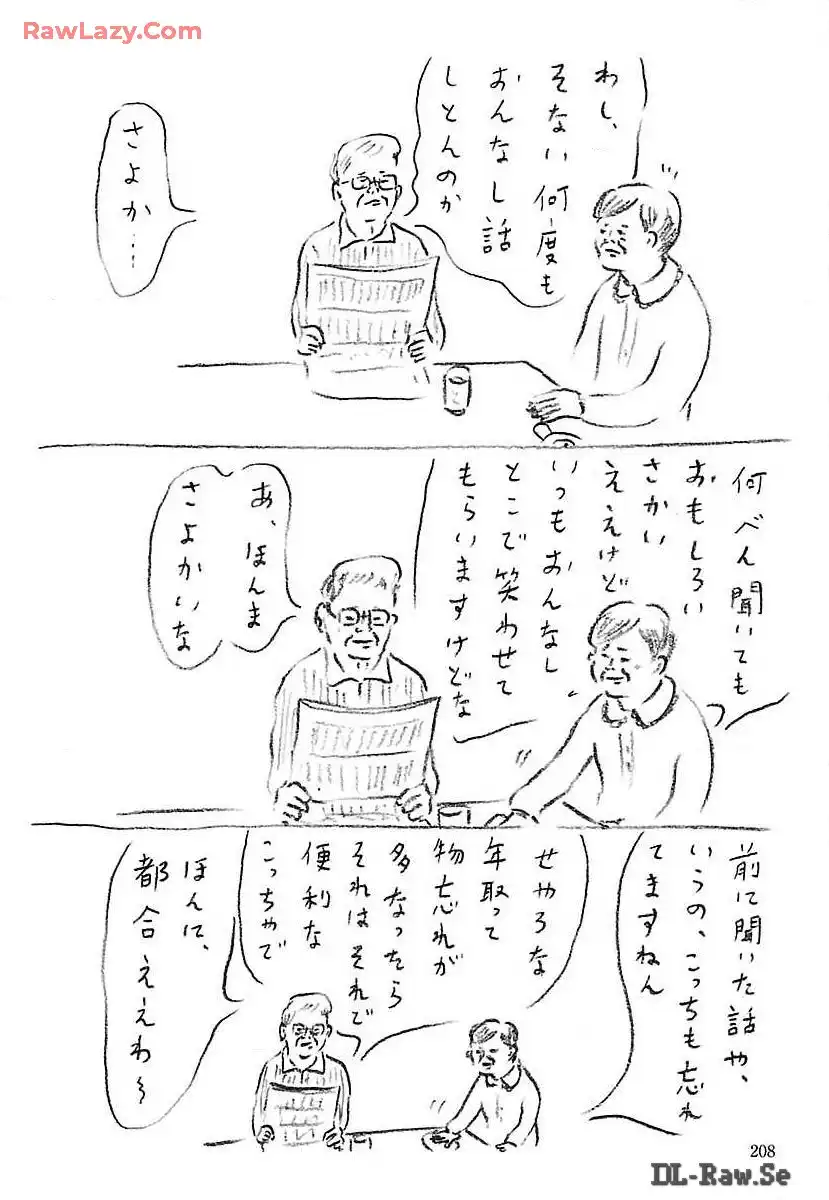 RawLazy.Com
わし、
そない何度も
おんなし話
しとんのか
さよか…
何べん聞いても
おもしろい
さかい
ええけど
いつもおんなし
とこで笑わせて
もらいますけどな
あ、ほんま
さよかいな
前に聞いた話や、
いうの、こっちも忘れ
てますねん
せやろな
年取って
物忘れが
多なったら
それはそれで
便利な
こっちゃで
ほんに、
都合ええわ〜
208
DL-Raw.Se